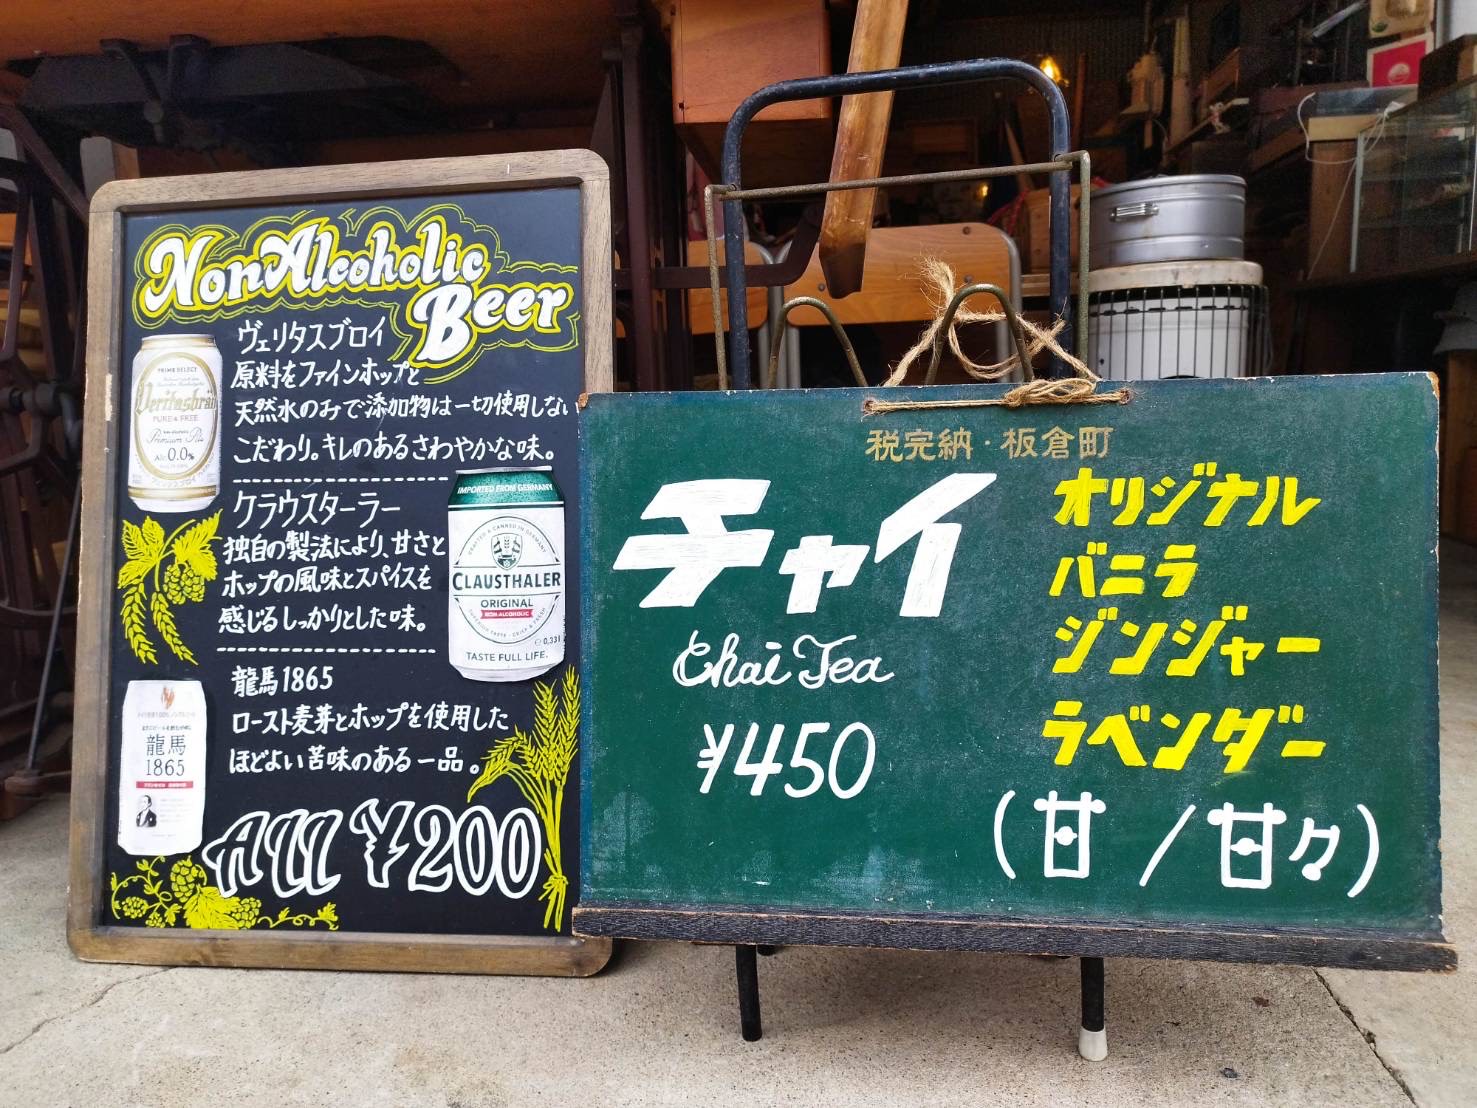 NonAlcoholic
Beer
ヴェリタスブロイ
原料をファインホップと
天然水のみで添加物は一切使用しない
こだわり。キレのあるさわやかな味。
PRIME SELECT
Veritasbräu
PURE & FREE
Premium Pils
Alc 0.0%
クラウスターラー
独自の製法により、甘さと
ホップの風味とスパイスを
感じるしっかりとした味。
IMPORTED FROM GERMANY
CLAUSTHALER
ORIGINAL
NON-ALCOHOLIC
0,33l
TASTE FULL LIFE.
龍馬1865
ロースト麦芽とホップを使用した
ほどよい苦味のある一品。
龍馬
1865
ALL ¥200
税完納・板倉町
チャイ
Chai Tea
¥450
オリジナル
バニラ
ジンジャー
ラベンダー
(甘/甘々)